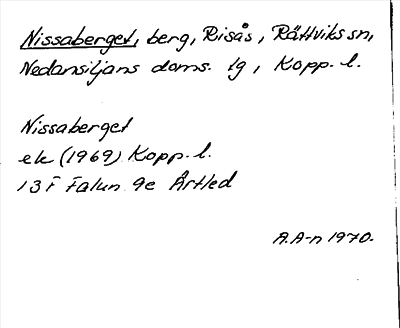 Nissaberget, berg, Risås, Rättviks sn,
Nedansiljans doms. tg, Kopp. l.
Nissaberget
ek (1969) Kopp. l.
13 F Falun 9e Årtled
A.A-n 1970.